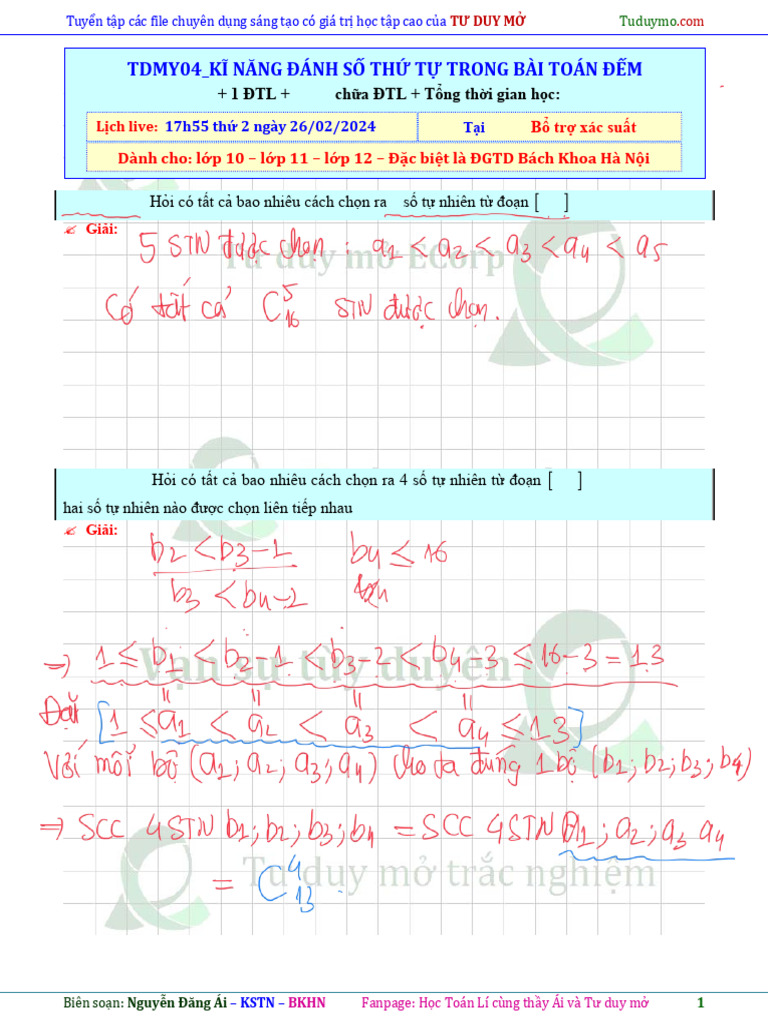 Tuyển tập các file chuyên dụng sáng tạo có giá trị học tập cao của TƯ DUY MỞ Tuduymo.com
TDMY04_KĨ NĂNG ĐÁNH SỐ THỨ TỰ TRONG BÀI TOÁN ĐẾM
+ 1 ĐTL + chữa ĐTL + Tổng thời gian học:
Lịch live: 17h55 thứ 2 ngày 26/02/2024 Tại Bổ trợ xác suất
Dành cho: lớp 10 – lớp 11 – lớp 12 – Đặc biệt là ĐGTD Bách Khoa Hà Nội
Hỏi có tất cả bao nhiêu cách chọn ra số tự nhiên từ đoạn [ ]
Giải:
5 STN được chọn : a1 < a2 < a3 < a4 < a5
Tư duy mở ECorp
Có tất cả C 5 16 STN được chọn.
Hỏi có tất cả bao nhiêu cách chọn ra 4 số tự nhiên từ đoạn [ ]
hai số tự nhiên nào được chọn liên tiếp nhau
Giải:
b2 < b3 – 1 b4 ≤ 16
b3 < b4 – 2
=> 1 ≤ b1 < b2 – 1 < b3 – 2 < b4 – 3 ≤ 16 – 3 = 13
Vạn sự tùy duyên
Đặt [1 ≤ a1 < a2 < a3 < a4 ≤ 13]
Với mỗi bộ (a1; a2; a3; a4) cho ra đúng 1 bộ (b1; b2; b3; b4)
=> SCC 4 STN b1; b2; b3; b4 = SCC 4 STN a1; a2; a3 a4
Tư duy mở trắc nghiệm
= C 4 13
Biên soạn: Nguyễn Đăng Ái – KSTN – BKHN Fanpage: Học Toán Lí cùng thầy Ái và Tư duy mở 1